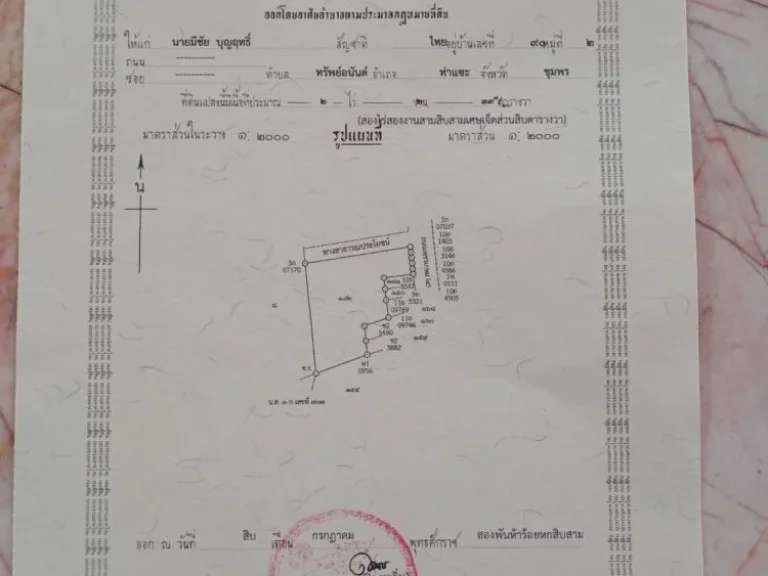 ออกโดยอาศัยอำนาจตามประมวลกฎหมายที่ดิน
ให้แก่ นายมีชัย บุญฤทธิ์ สัญชาติ ไทย อยู่บ้านเลขที่ ๙๐ หมู่ที่ ๒
ถนน ----------
ซอย ---------- ตำบล ทรัพย์อนันต์ อำเภอ ท่าแซะ จังหวัด ชุมพร
ที่ดินแปลงนี้มีเนื้อที่ประมาณ ๒ ไร่ ๒ งาน ตารางวา
(สองไร่สองงานสามสิบสามเศษเจ็ดส่วนสิบตารางวา)
มาตราส่วนในระวาง ๑: ๒๐๐๐ รูปแผนที่ มาตราส่วน ๑: ๒๐๐๐
น
ทางสาธารณประโยชน์
3ถ
07170
3ถ
07037
10ธ
1603
10ธ
3146
10ธ
4586
0111
10ธ
4505
5321
11ธ
09769
11ธ
09746
5490
5882
0956
น.ส. ๓ ก เลขที่
ออก ณ วันที่ สิบ เดือน กรกฎาคม พุทธศักราช สองพันห้าร้อยหกสิบสาม